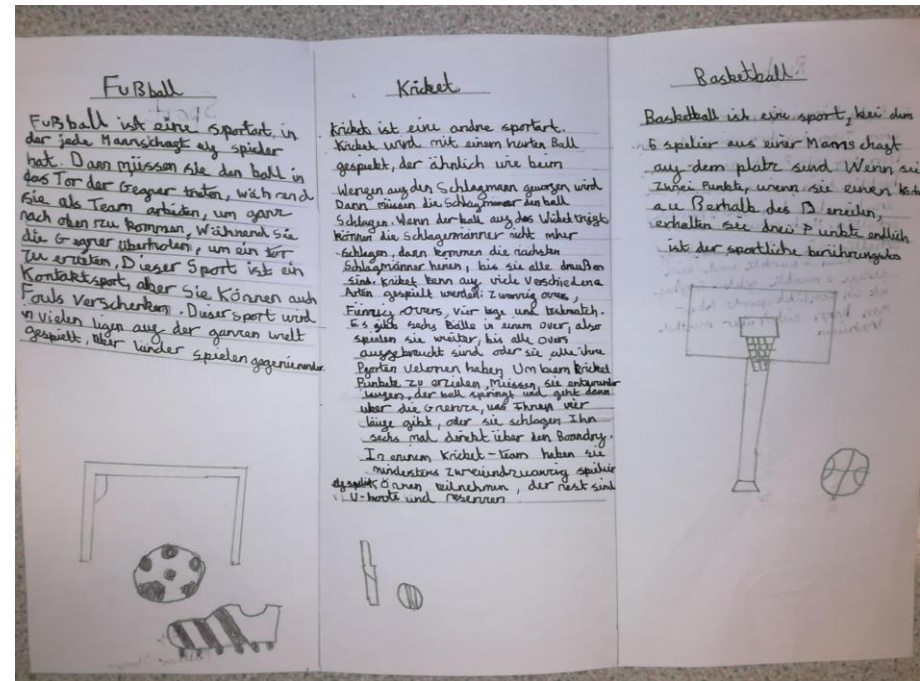 Fußball
Fußball ist eine sportart in
der jede Mannschagt elg spieler
hat. Dann müssen sie den ball in
das Tor der Gegner treten, während
sie als Team arbeiten, um ganz
nach oben zu kommen, Während sie
die Gegner überholen, um ein tor
zu erzielen. Dieser Sport ist ein
Kontaktsport, aber Sie können auch
Fouls verschenken. Dieser sport wird
in vielen ligen aug der ganzen welt
gespielt, über länder spielen gegeneinander.
Kricket
Kricket ist eine andre sportart.
Kricket wird mit einem harten Ball
gespielt, der ähnlich wie beim
Wergen aug den Schlagmann geworgen wird
Dann müssen die Schlagmänner den ball
Schlagen. Wenn der ball aug das Wicket trigt
können die Schlagermänner nicht mher
schlagen, dann kommen die nächsten
Schlagmänner hinen, bis sie alle draußen
sind. Kricket kann aug viele verschiedena
Arten gespielt werden: zwanzig overs,
Fünzig overs, vier tage und testmatch.
Es gibt sechs Bälle in einem over, also
spielen sie weiter, bis alle overs
ausgebraucht sind oder sie alle ihre
Pgorten verloren haben. Um beim kricket
Punkte zu erzielen, Müssen sie entweder
laugen, der ball springt und geht dann
über die Grenze, was Ihnen vier
läuge gibt, oder sie schlagen Ihn
sechs mal direkt über den Boandry.
In einem Kricket-team haben sie
mindestens zweiundzwanzig spieler
elg spieler können teilnehmen, der rest sind
U-boote und reserven
Basketball
Basketball ist eine sport, bei dem
5 spieler aus einer Manns chagt
aug dem platz sind Wenn sie
zwei Punkte, wenn sie einen
außerhalb des D erzielen,
erhalten sie drei Punkte endlich
ist der sportliche berührungslos